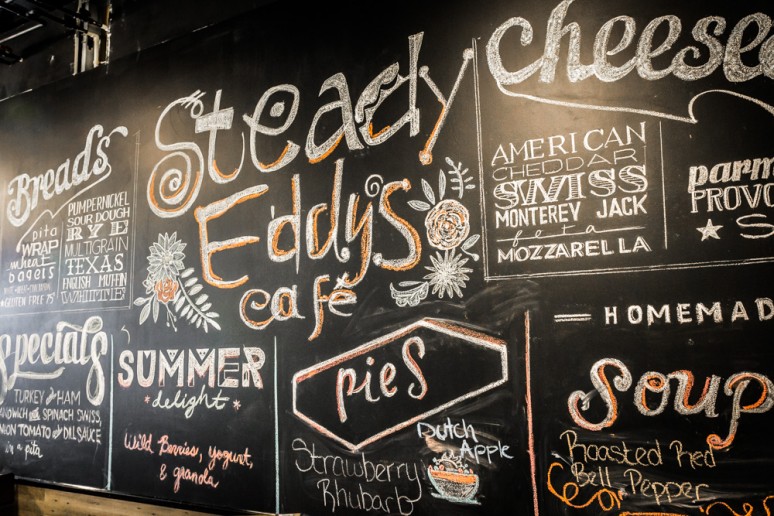 Steady
Eddy's
café
Breads
pita
WRAP
wheat
bagels
GLUTEN FREE 75¢
PUMPERNICKEL
SOUR DOUGH
RYE
MULTIGRAIN
TEXAS
ENGLISH MUFFIN
WHITE
Cheese
AMERICAN
CHEDDAR
SWISS
MONTEREY JACK
feta
MOZZARELLA
Specials
TURKEY OR HAM
SPINACH SWISS,
TOMATO DILL SAUCE
in a pita
SUMMER
delight
Wild Berries, yogurt,
& granola
pies
Dutch
Apple
Strawberry
Rhubarb
HOMEMAD
Soup
Roasted Red
Bell Pepper